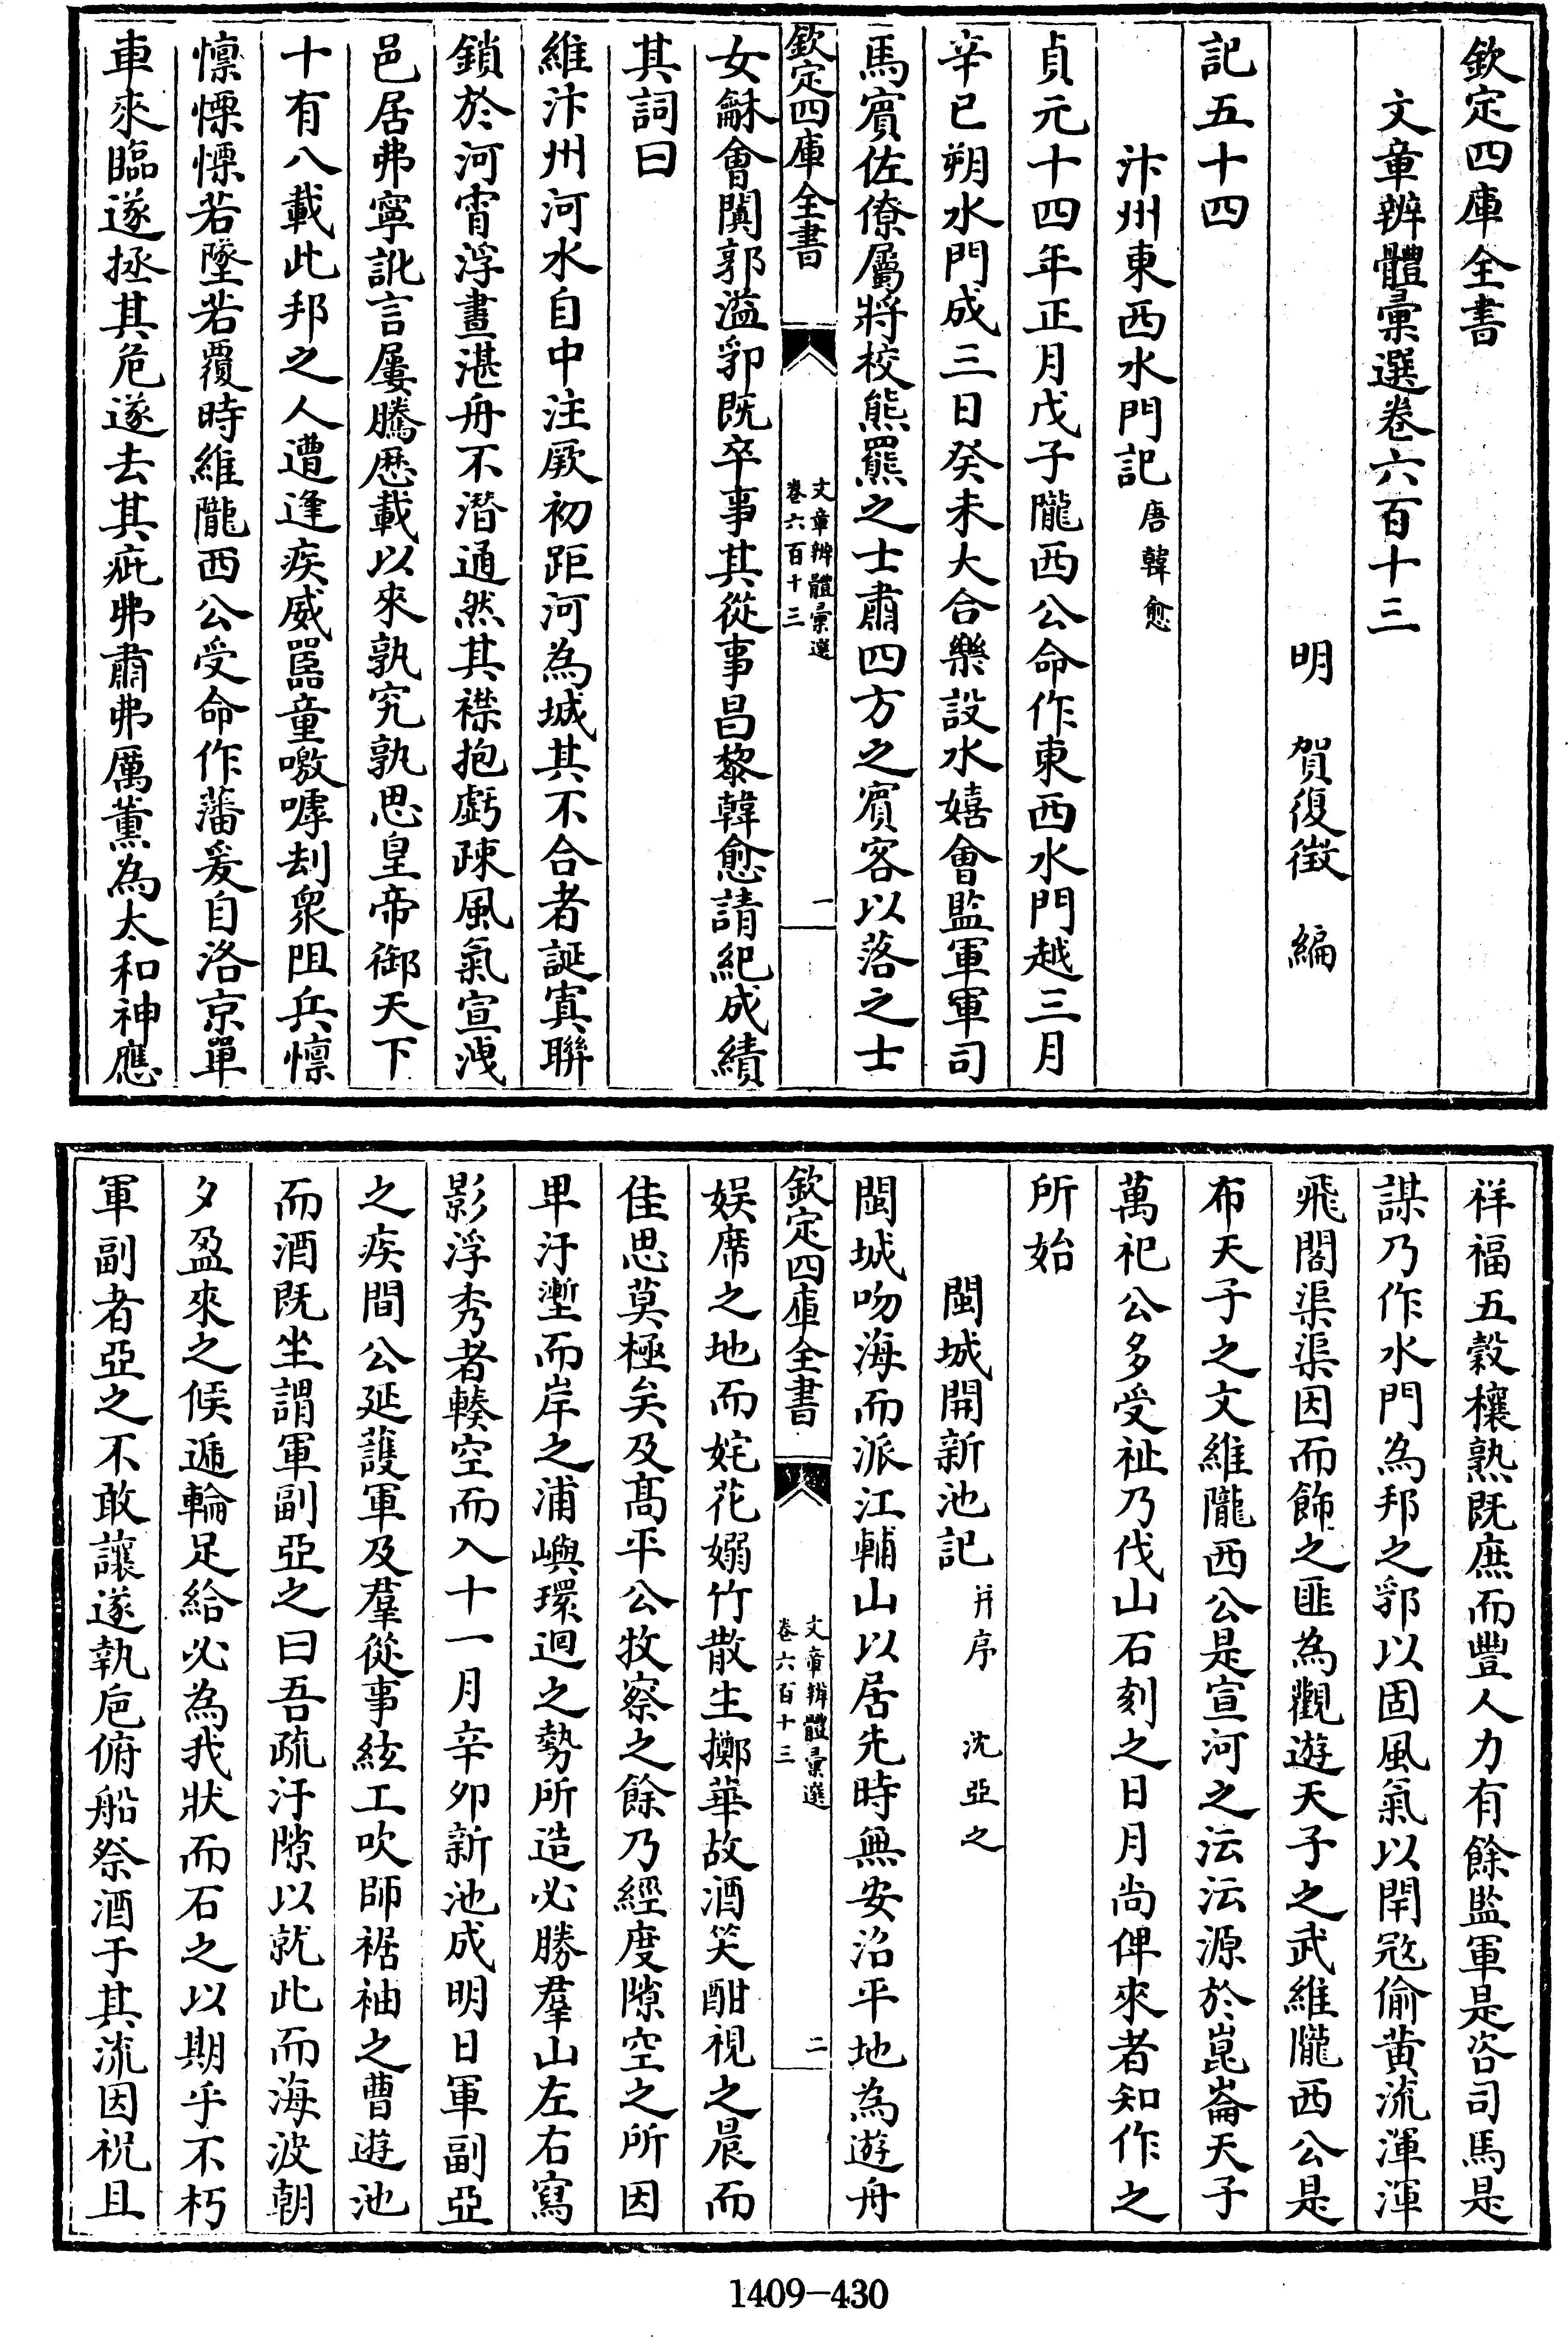 欽定四庫全書
文章辨體彙選卷六百十三
明　賀復徵　編
記五十四
汴州東西水門記唐韓愈
貞元十四年正月戊子隴西公命作東西水門越三月
辛巳朔水門成三日癸未大合樂設水嬉會監軍軍司
馬賓佐僚屬將校熊羆之士肅四方之賓客以落之士
欽定四庫全書
文章辨體彙選
卷六百十三
一
女龢會闐郭溢郛既卒事其從事昌黎韓愈請紀成績
其詞曰
維汴州河水自中注厥初距河為城其不合者誕寘聯
鎖於河宵浮晝湛舟不潛通然其襟抱虧疎風氣宣洩
邑居弗寧訛言屢騰歷載以來孰究孰思皇帝御天下
十有八載此邦之人遭逢疾威嚚童噭嘑刦衆阻兵懍
懍慄慄若墜若覆時維隴西公受命作藩爰自洛京單
車來臨遂拯其危遂去其疵弗肅弗厲薰為太和神應
祥福五穀穰熟既庶而豐人力有餘監軍是咨司馬是
謀乃作水門為邦之郛以固風氣以閈冦偷黄流渾渾
飛閣渠渠因而飾之匪為觀遊天子之武維隴西公是
布天子之文維隴西公是宣河之沄沄源於崑崙天子
萬祀公多受祉乃伐山石刻之日月尚俾來者知作之
所始
閩城開新池記并序　沈亞之
閩城吻海而派江輔山以居先時無安沿平地為遊舟
欽定四庫全書
文章辨體彙選
卷六百十三
二
娛席之地而姹花嫋竹散生擲華故酒笑酣視之晨而
佳思莫極矣及髙平公牧察之餘乃經度隙空之所因
卑汙壍而岸之浦嶼環迴之勢所造必勝羣山左右寫
影浮秀者轇空而入十一月辛卯新池成明日軍副亞
之疾間公延護軍及羣從事絃工吹師裾袖之曹遊池
而酒既坐謂軍副亞之曰吾疏汙隙以就此而海波朝
夕盈來之候遞輪足給必為我狀而石之以期乎不朽
軍副者亞之不敢讓遂執巵俯船祭酒于其流因祝且
1409-430